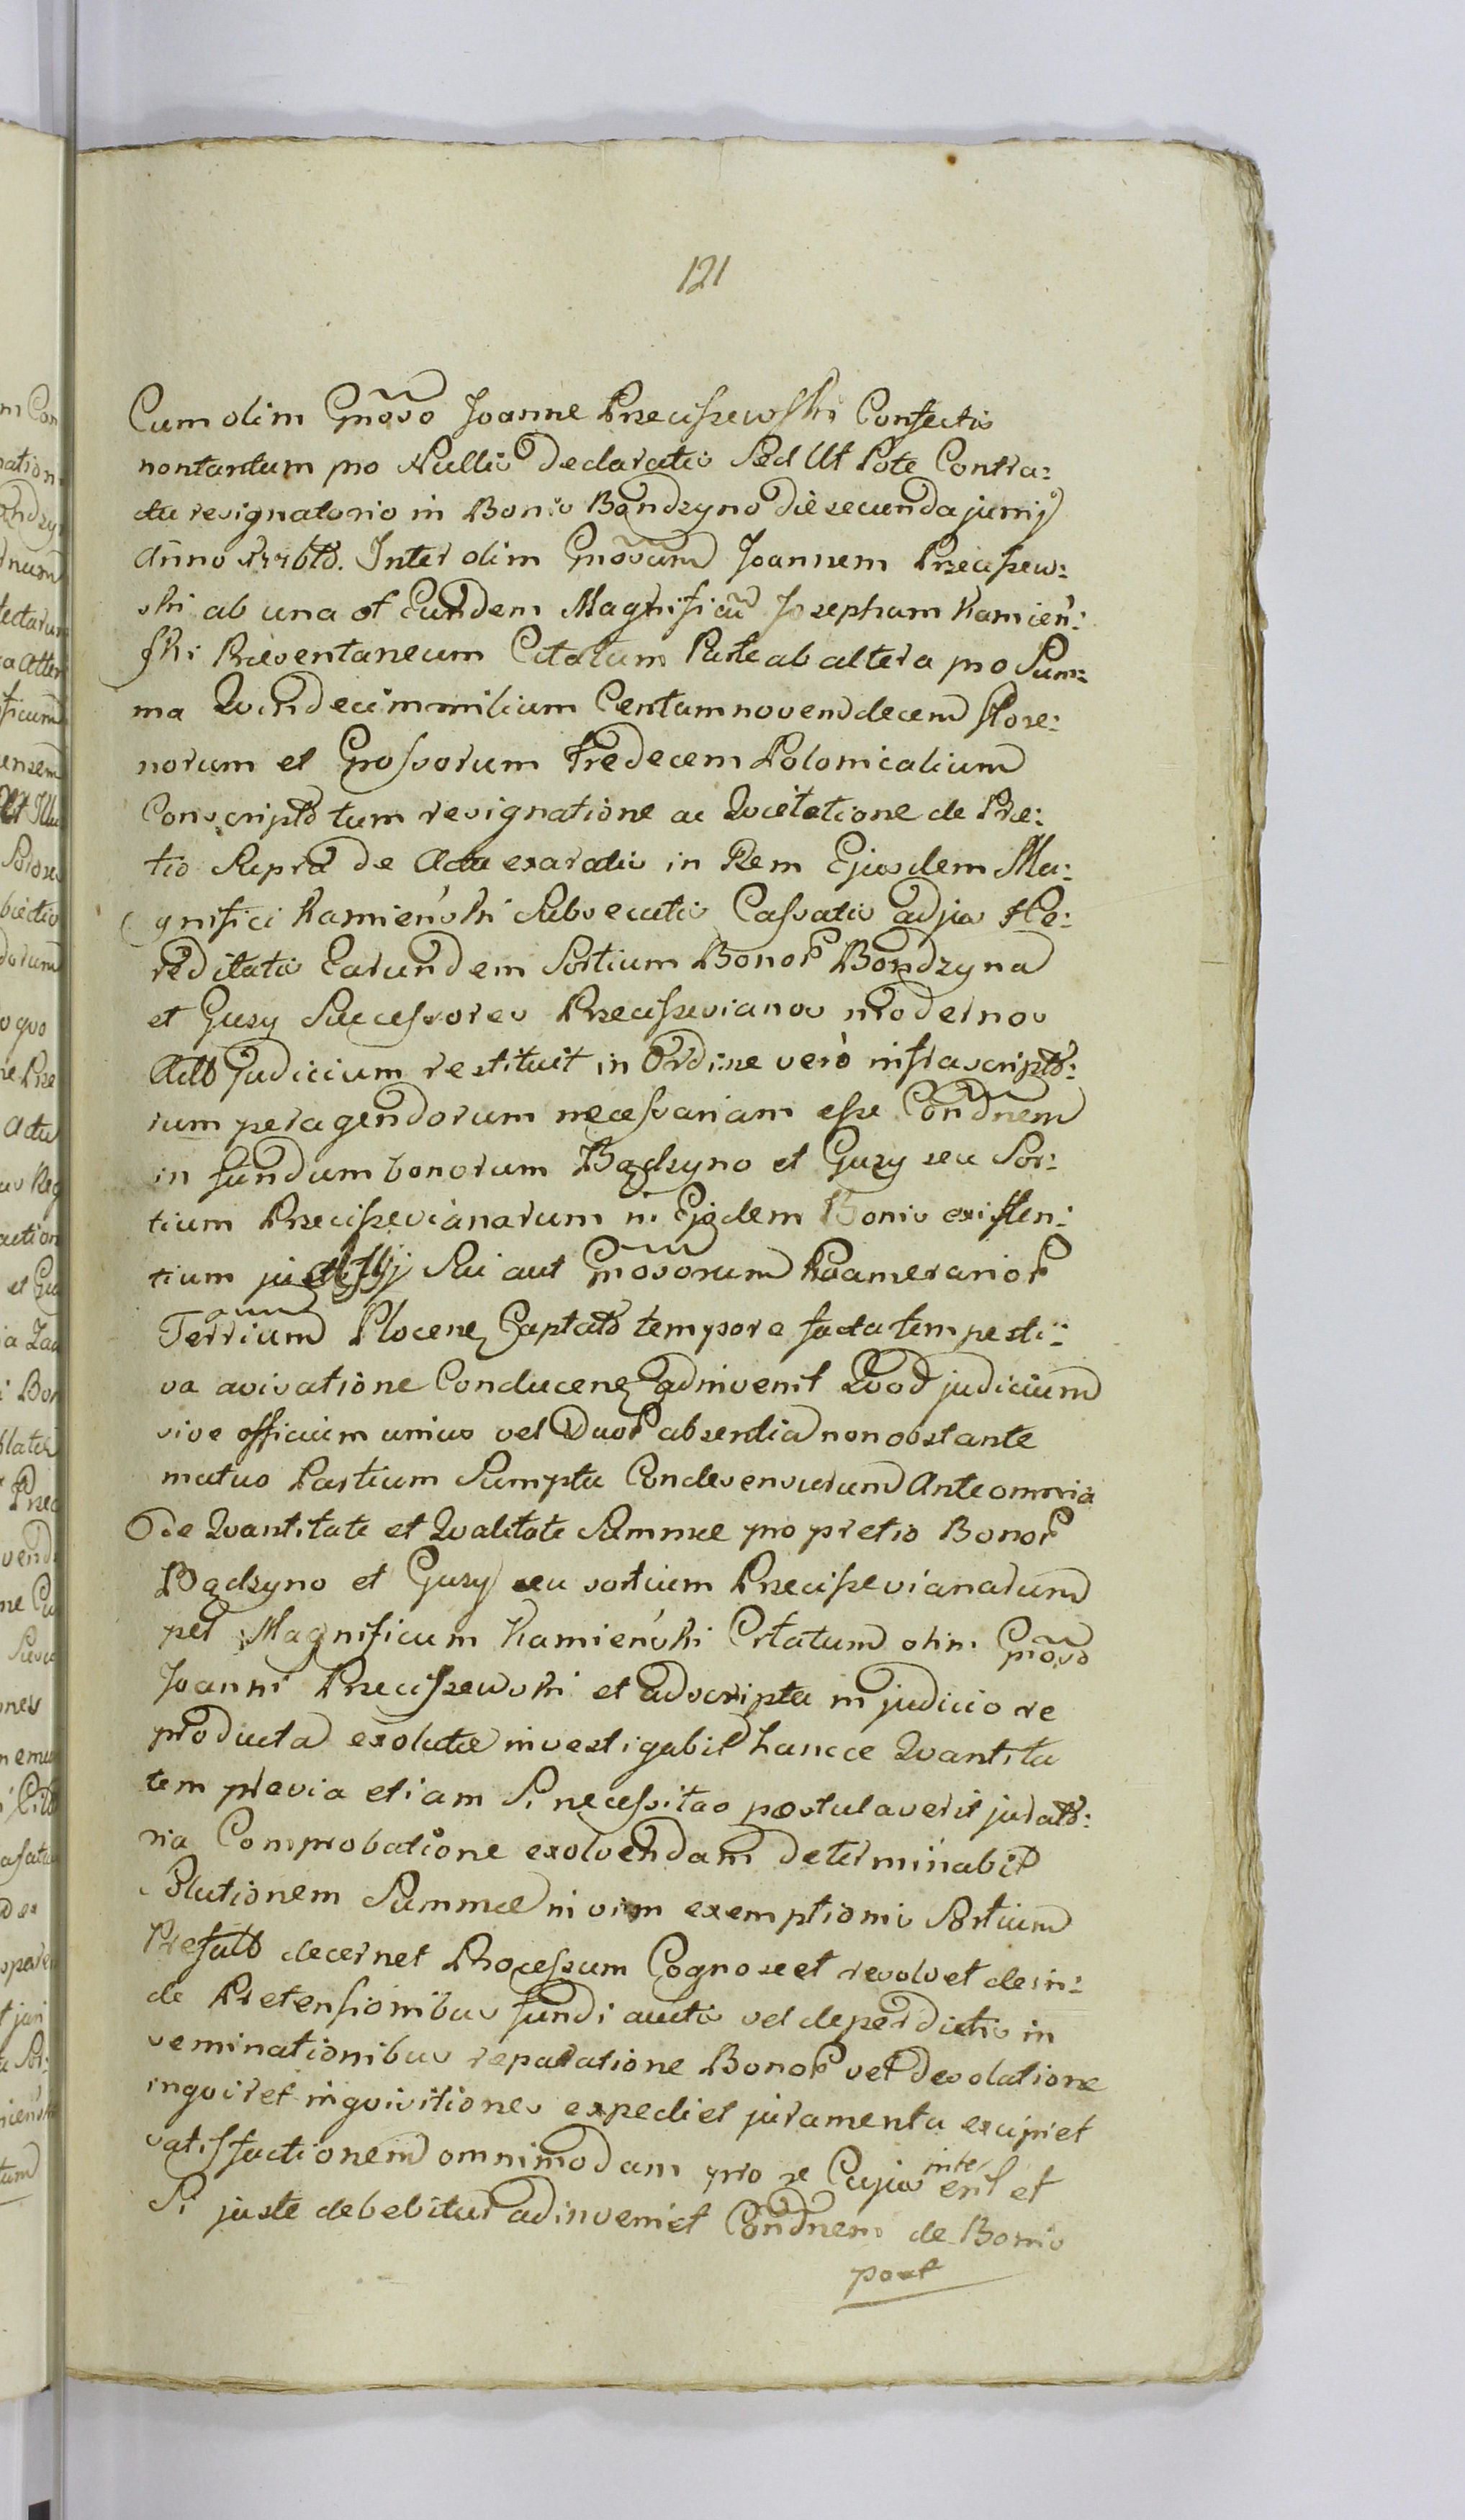 121
Cum olim Gnõso Joanne Przeciszewski Confectis
nontantum pro Nullis declaratis Sed Ut Pote Contra:
ctu resignatorio in Bonis Bondzyno die secunda junij
Anno Inter olim Gnõsum Joannem Przeciszew:
ski ab una et Eundem Magnificũ Josephum Kamień:
ski Præsentaneum Citatum Parte ab altera pro Sum:
ma Quindecim milium Centum novemdecem flore:
norum et Grossorum tredecem Polonicalium
Conscripto tum resignatione ac Quietatione de Præ:
tio Supra de Actu exaratis in Rem Ejusdem Ma:
gnifici Kamieński Subsecutis Cassatis ad jus Hæ:
reditatis Earundem Sortium Bonor Bondzyna
et Guzy Successores Przeciszevianos modernos
Actt Judicium restituit in Ordine verò infrascripto:
rum peragendorum necessariam esse Condnem
in fundum bonorum Bądzyno et Guzy seu Sor:
tium Przeciszevianarum in Ejsdem Bonis existen:
tium Sui aut Gnõsorum Kamerarior
Terrium Plocen Captato tempore facta tempesti:
va avisatione Conducen adinvenit Quod judicium
sive officium unius vel Duor absentia non obstante
mutuo Partium Sumptu Condescensurum Ante omnia
de Quantitate et Qualitate Summæ pro pretio Bonor
Bądzyno et Guzy seu sortium Przeciszevianarum
per Magnificum Kamieński Citatum olim Gnõso
Joanni Przeciszewski et adscripta in judicio re
producta exolutæ investigabit hancce Quantita
tem prævia etiam Si necessitas postulaverit jurato:
ria Comprobatione exolvendam determinabit
Solutionem Summæ in vim exemptionis Sortium
Præfatt decernet Processum Cognoscet resolvet dein:
de Prætensionibus fundi auctis vel deperditis in
seminationibus reparatione Bonor vel desolatione
inquiret inquisitiones expediet juramenta excipiet
satisfactionem omnimodam pro re Cujus inte erit et
Si juste debebitur adinveniet Condnem de Bonis
post